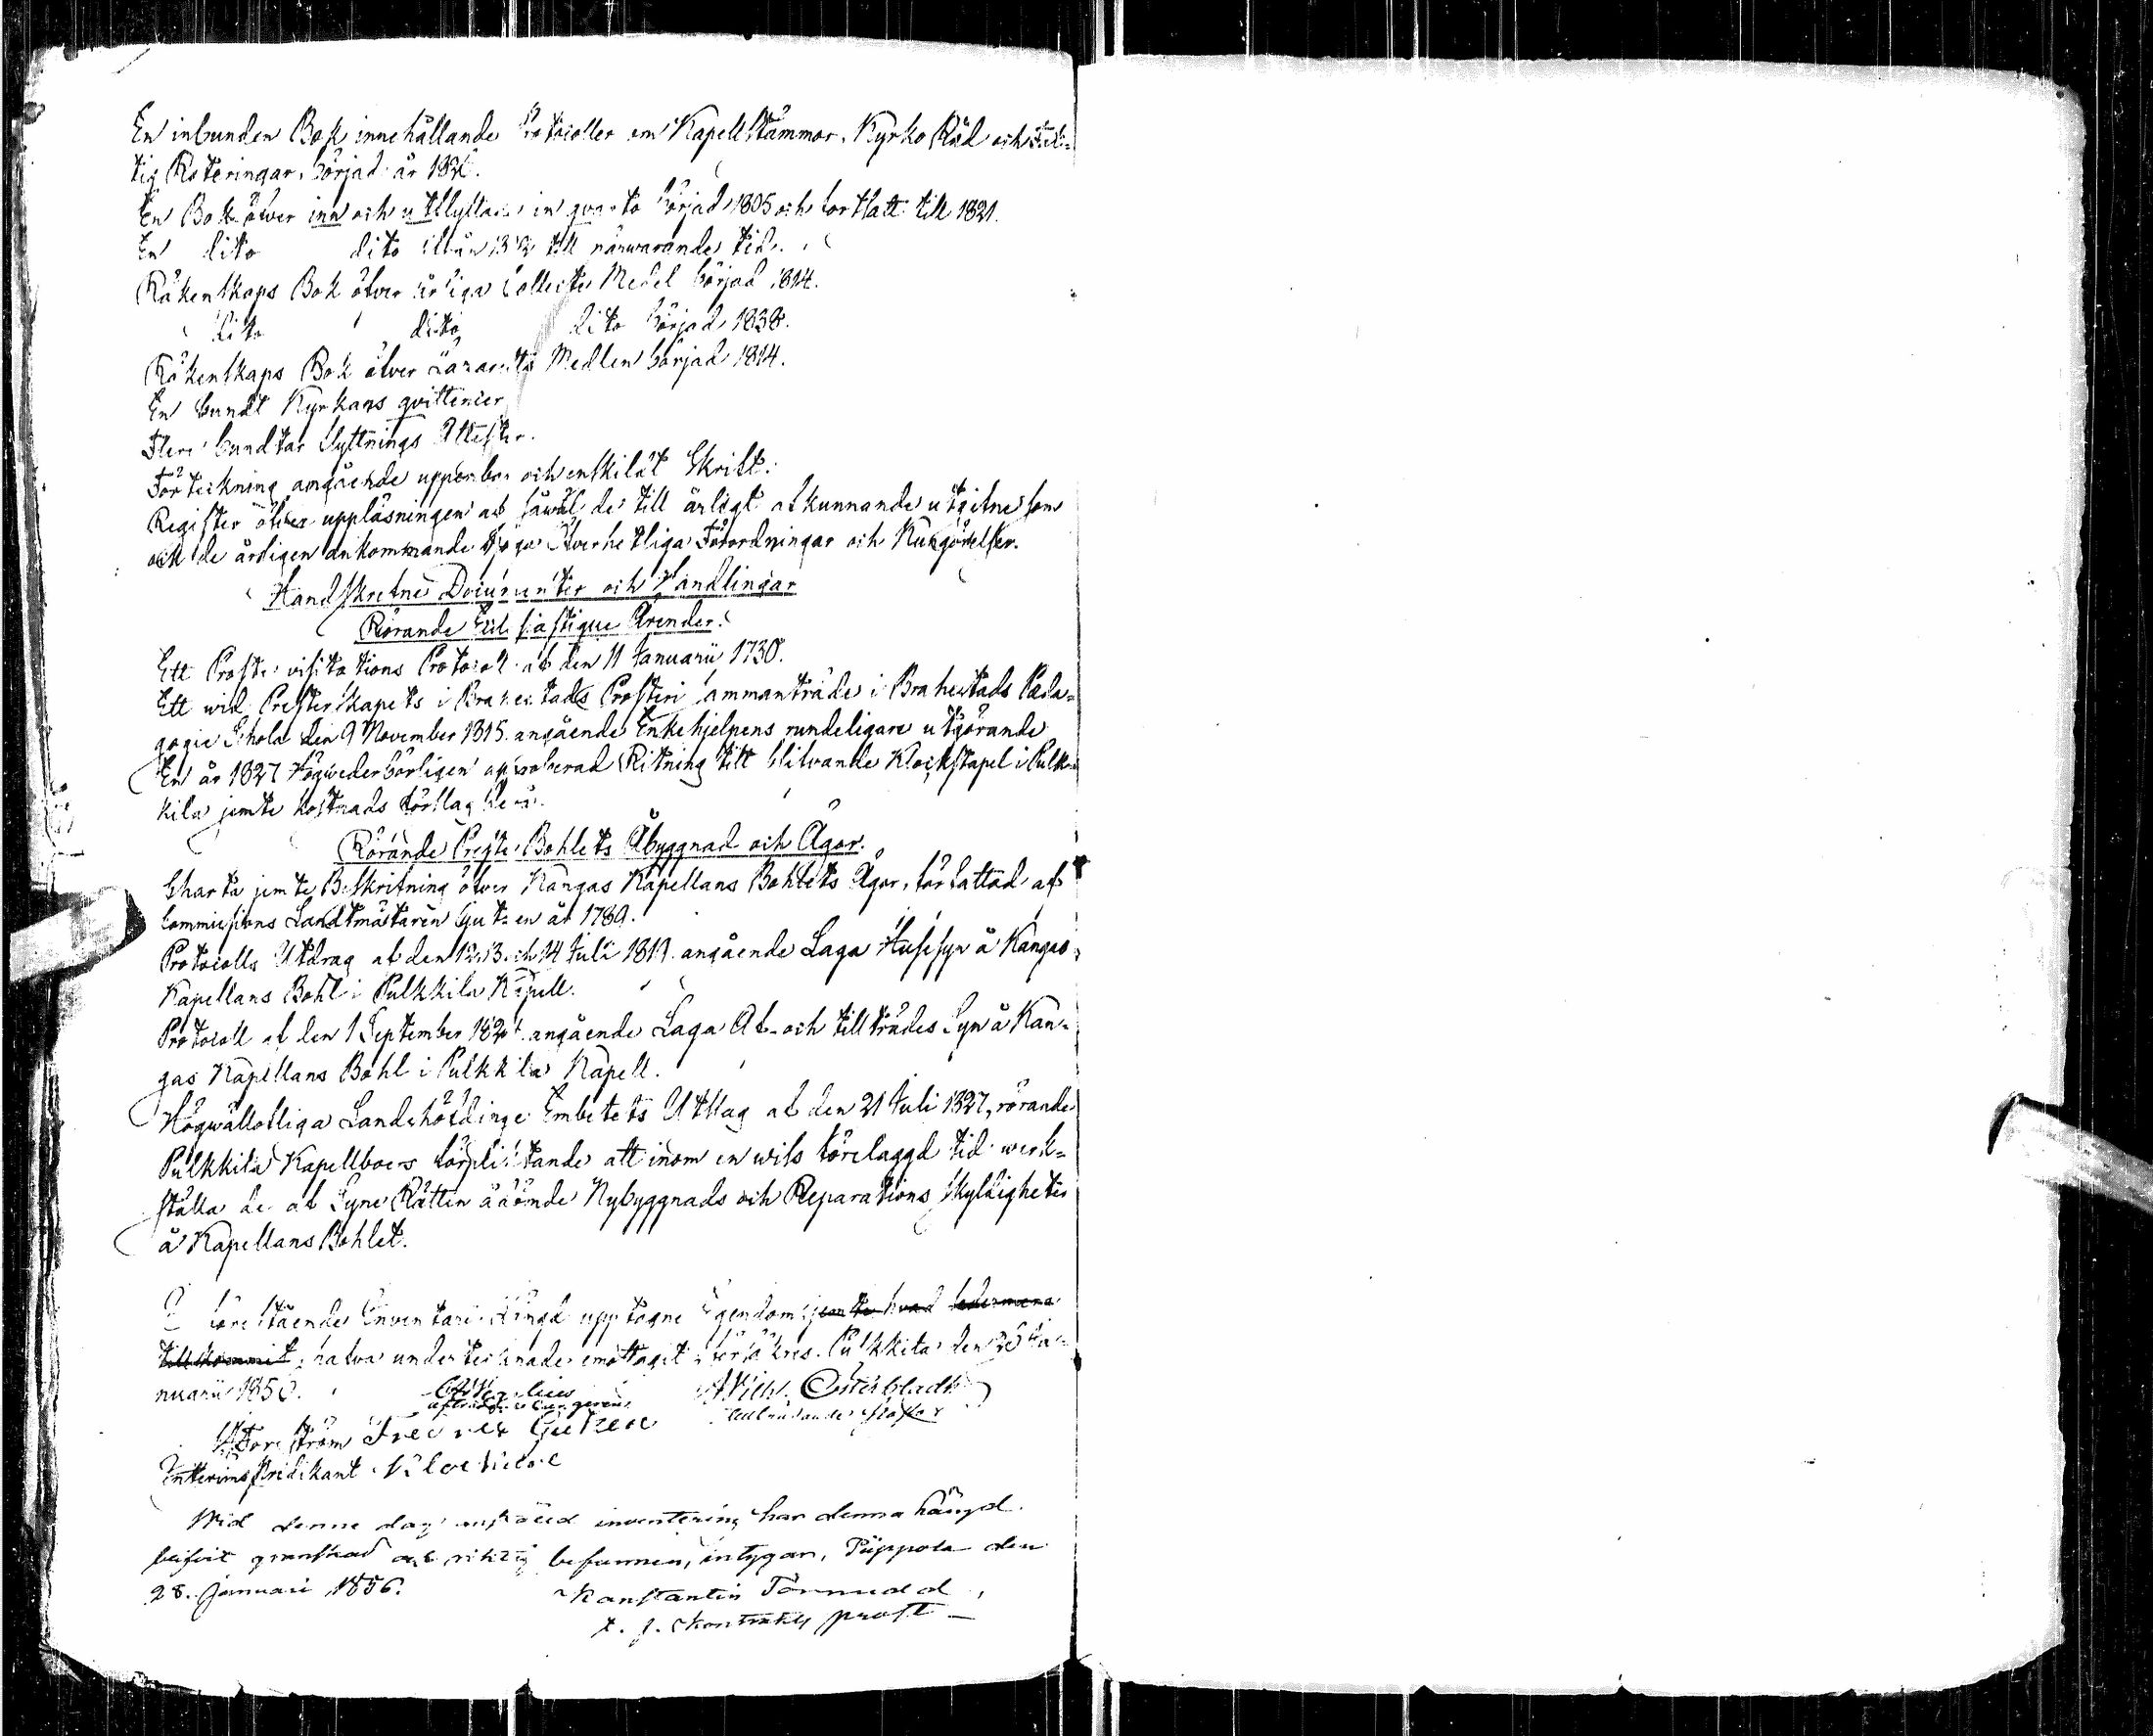 En inbunden Bok innehållande Protocoller om Kapellstämmor, Kyrko Råd och
tig Roteringar, börjad år
En Bok öfwer inn och utflyttade in qvarto börjad 1805 och fortsatt till 1821.
En dito dito ifrån till närwarande tid.
Räkenskaps Bok öfver årliga Collecte Medel börjad 1814.
dito dito dito börjad 1838.
Räkenskaps Bok öfver Lazaretts Medlen börjad 1814.
En bundt Kyrkans qvittencer
Flere bundtar flyttnings Attester.
Förteckning angående uppenbar och enskildt Skrift.
Register öfver uppläsningen af såwäl de till årligt afkunnande utgifne som
ock de årligen ankommande höga Öfverhetliga Förordningar och Kungörelser.
Handskrefne Documenter och Handlingar
Rörande Ecclesiastique Ärender.
Ett Proste visitations Protocoll af den 11 Januarii 1730.
Ett wid Presterskapets i Brahestads Prosteri sammanträde i Brahestads Pæda-
gogie Schola den 9 November 1815 angående Enkehjelpens rundeligare utgörande
En år 1827 Högwederbörligen approberad Ritning till blifvande Klockstapel i Pulk-
kila jemte kostnads förslag
Rörande Preste Bohlets Åbyggnad och Ägor.
Charta jemte Beskrifning öfver Kangas Kapellans Bohlets Ägor, författad af
Commissions Landtmätaren år 1789.
Protocolls Utdrag af den 12, 13 och 14 Juli 1819 angående Laga Husesyn å Kangas
Kapellans Bohl i Pulkkila Kapell.
Protocoll af den 1 September angående Laga Af- och tillträdes Syn å Kan-
gas Kapellans Bohl i Pulkkila Kapell.
Högwällofliga Landshöfdinge Embetets Utslag af den 21 Juli 1827, rörande
Pulkkila Kapellboers förpliktande att inom en wiss förelaggd tid werk-
ställa de af Syne Rätten ådömde Nybyggnads och Reparations skyldigheter
å Kapellans Bohlet.
I förestående Inventarii Längd upptagne Egendom jemte hvad sedermera
tillkommit, hafva undertecknade emottagit, försäkras. Pulkkila den Ja-
nuarii
Wilh. Österbladh
tillträdande
Forsström Gutzen
Interims Predikant
Wid denne dag anstäld inventering har denna längd
blifvit granskad och riktig befunnen, intygar, Piippola den
28. Januari 1856. Konstantin Törnudd,
t. f. Kontrakts prost